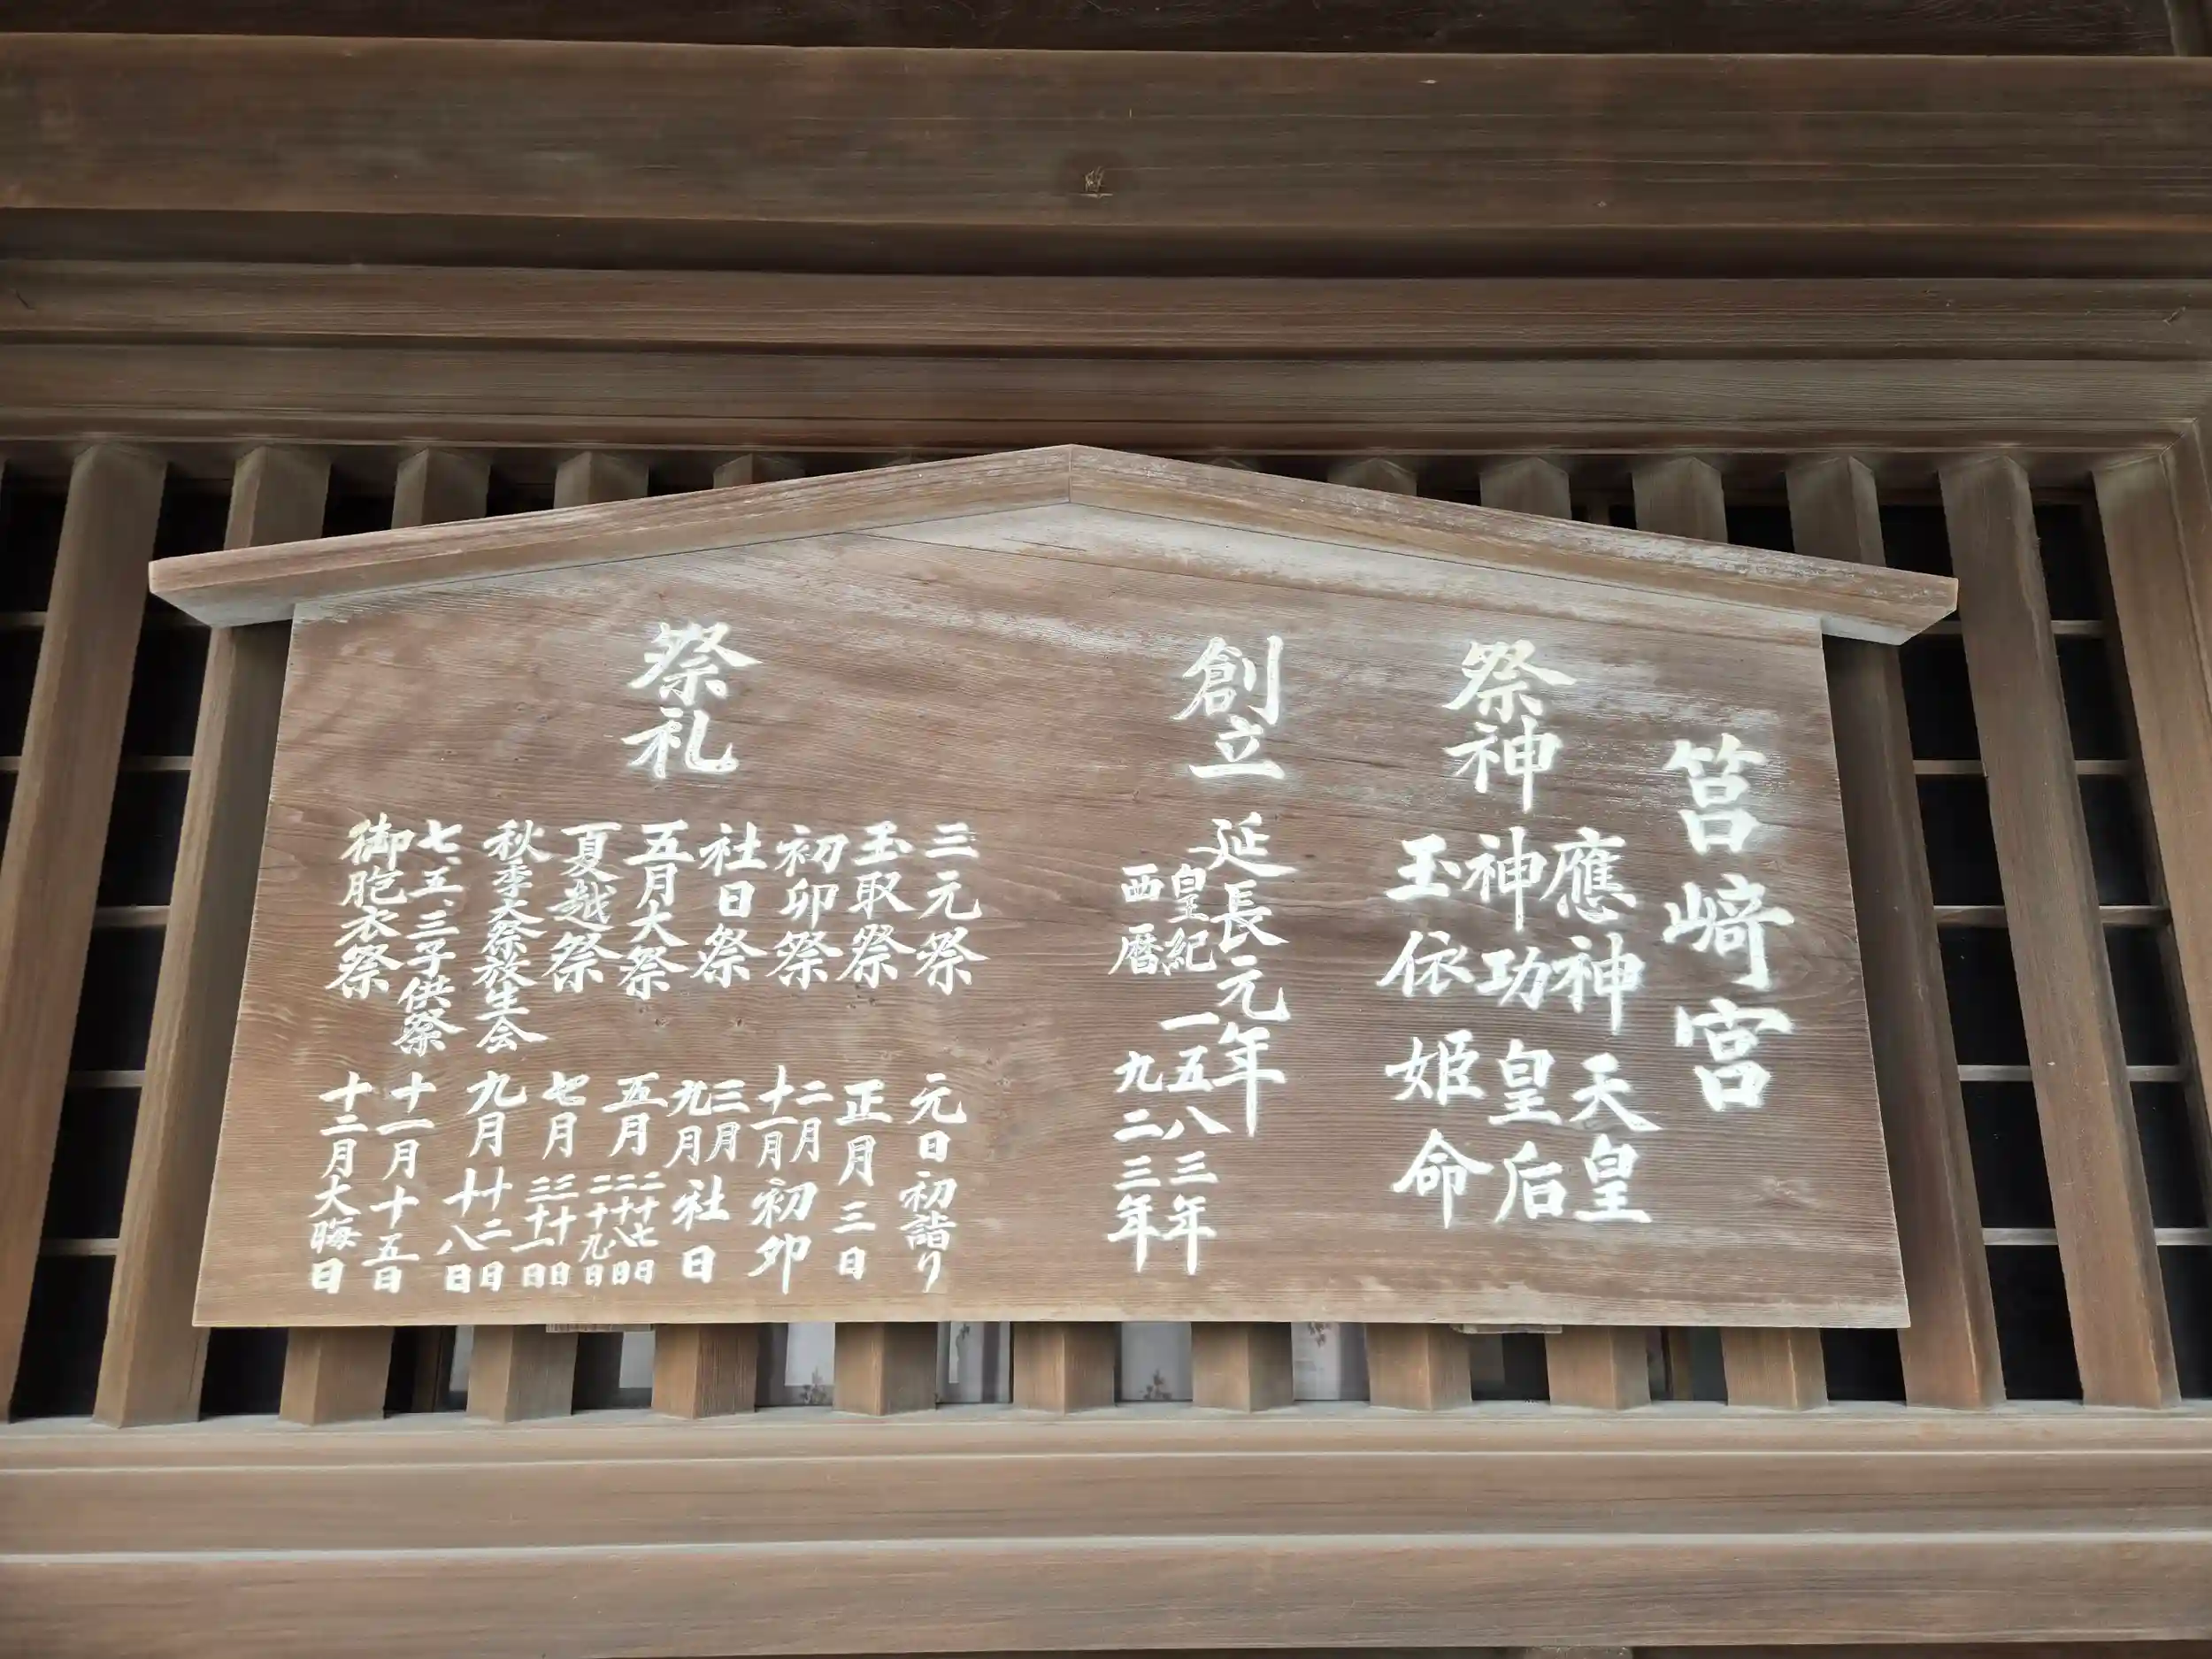 筥﨑宮
祭神
應神天皇
神功皇后
玉依姫命
創立
延長元年
皇紀一五八三年
西暦九二三年
祭礼
三元祭 元日初詣り
玉取祭 正月三日
初卯祭 二月十一月初卯
社日祭 三月九月社日
五月大祭 五月二十七日二十八日二十九日
夏越祭 七月三十日三十一日
秋季大祭放生会 九月十二日十八日
七、五、三子供祭 十一月十五日
御胞衣祭 十二月大晦日